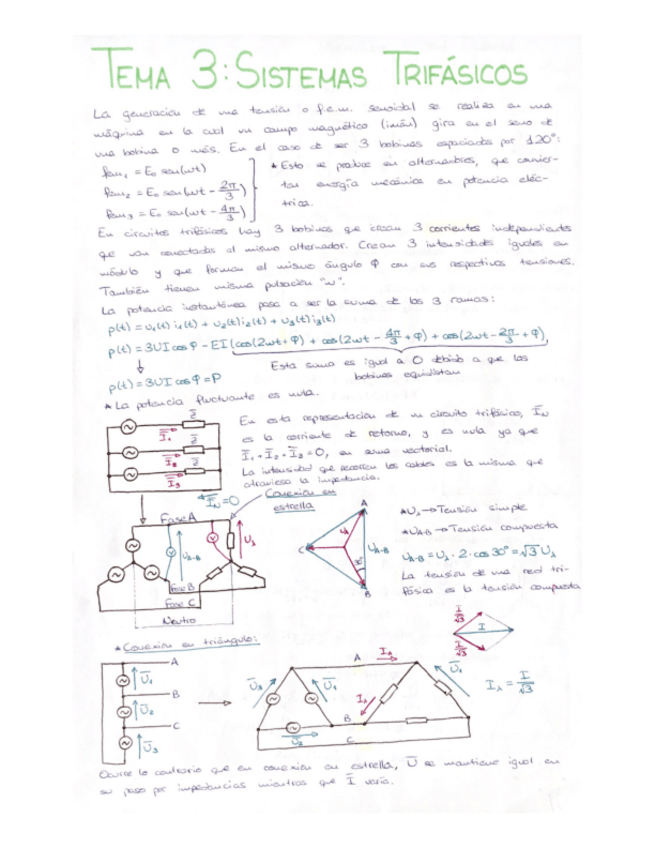 TEMA 3: SISTEMAS TRIFÁSICOS
La generación de una tensión o f.e.m. senoidal se realiza en una
máquina en la cual un campo magnético (imán) gira en el seno de
una bobina o más. En el caso de ser 3 bobinas espaciadas por 120°:
fem₁ = E₀ sen(ωt)
fem₂ = E₀ sen(ωt - 2π/3)
fem₃ = E₀ sen(ωt - 4π/3)
* Esto se produce en alternadores, que convier-
ten energía mecánica en potencia eléc-
trica.
En circuitos trifásicos hay 3 bobinas que crean 3 corrientes independientes
que van conectadas al mismo alternador. Crean 3 intensidades iguales en
módulo y que forman el mismo ángulo φ con sus respectivas tensiones.
También tienen misma pulsación "ω".
La potencia instantánea pasa a ser la suma de las 3 ramas:
p(t) = u₁(t) i₁(t) + u₂(t) i₂(t) + u₃(t) i₃(t)
p(t) = 3UI cos φ - EI (cos(2ωt + φ) + cos(2ωt - 4π/3 + φ) + cos(2ωt - 2π/3 + φ)
Esta suma es igual a 0 debido a que las
bobinas equidistan
p(t) = 3UI cos φ = P
* La potencia fluctuante es nula.
Z̄
I̅₁
Z̄
I̅₂
Z̄
I̅₃
I̅N = 0
En esta representación de un circuito trifásico, I̅N
es la corriente de retorno, y es nula ya que
I̅₁ + I̅₂ + I̅₃ = 0, en suma vectorial.
La intensidad que recorren los cables es la misma que
atraviesa la impedancia.
Conexión en
estrella
Fase A
V
V
U A-B
U⅄
Fase B
Fase C
Neutro
A
U⅄
C
30°
U A-B
B
* U⅄ → Tensión simple
* U A-B → Tensión compuesta
U A-B = U⅄ · 2 · cos 30° = √3 U⅄
La tensión de una red tri-
fásica es la tensión compuesta
I/√3
I
I/√3
* Conexión en triángulo:
A
U̅₁
B
U̅₂
C
U̅₃
A
U̅₃
U̅₁
U̅₂
B
C
U̅₁
I⅄ = I/√3
Ocurre lo contrario que en conexión en estrella, U̅ se mantiene igual en
su paso por impedancias mientras que I̅ varía.